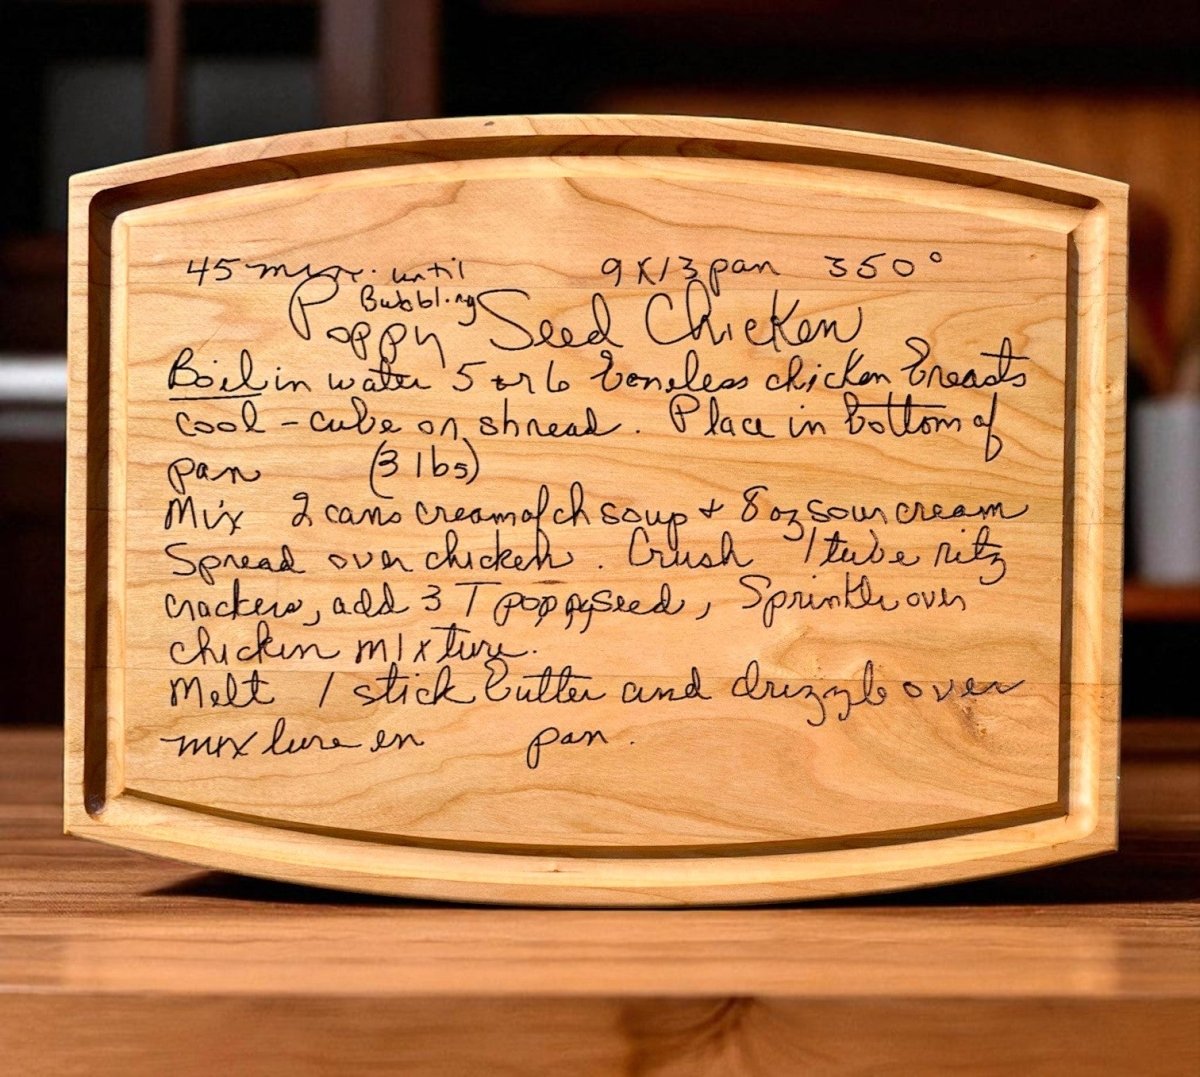 45 min. until 9x13 pan 350°
Bubbling
Poppy Seed Chicken
Boil in water 5 or 6 boneless chicken breasts
cool - cube or shread. Place in bottom of
pan (3 lbs)
Mix 2 cans cream of ch soup + 8 oz sour cream
Spread over chicken. Crush 1 tube ritz
crackers, add 3 T poppyseed, Sprinkle over
chicken mixture.
Melt 1 stick butter and drizzle over
mixture in pan.